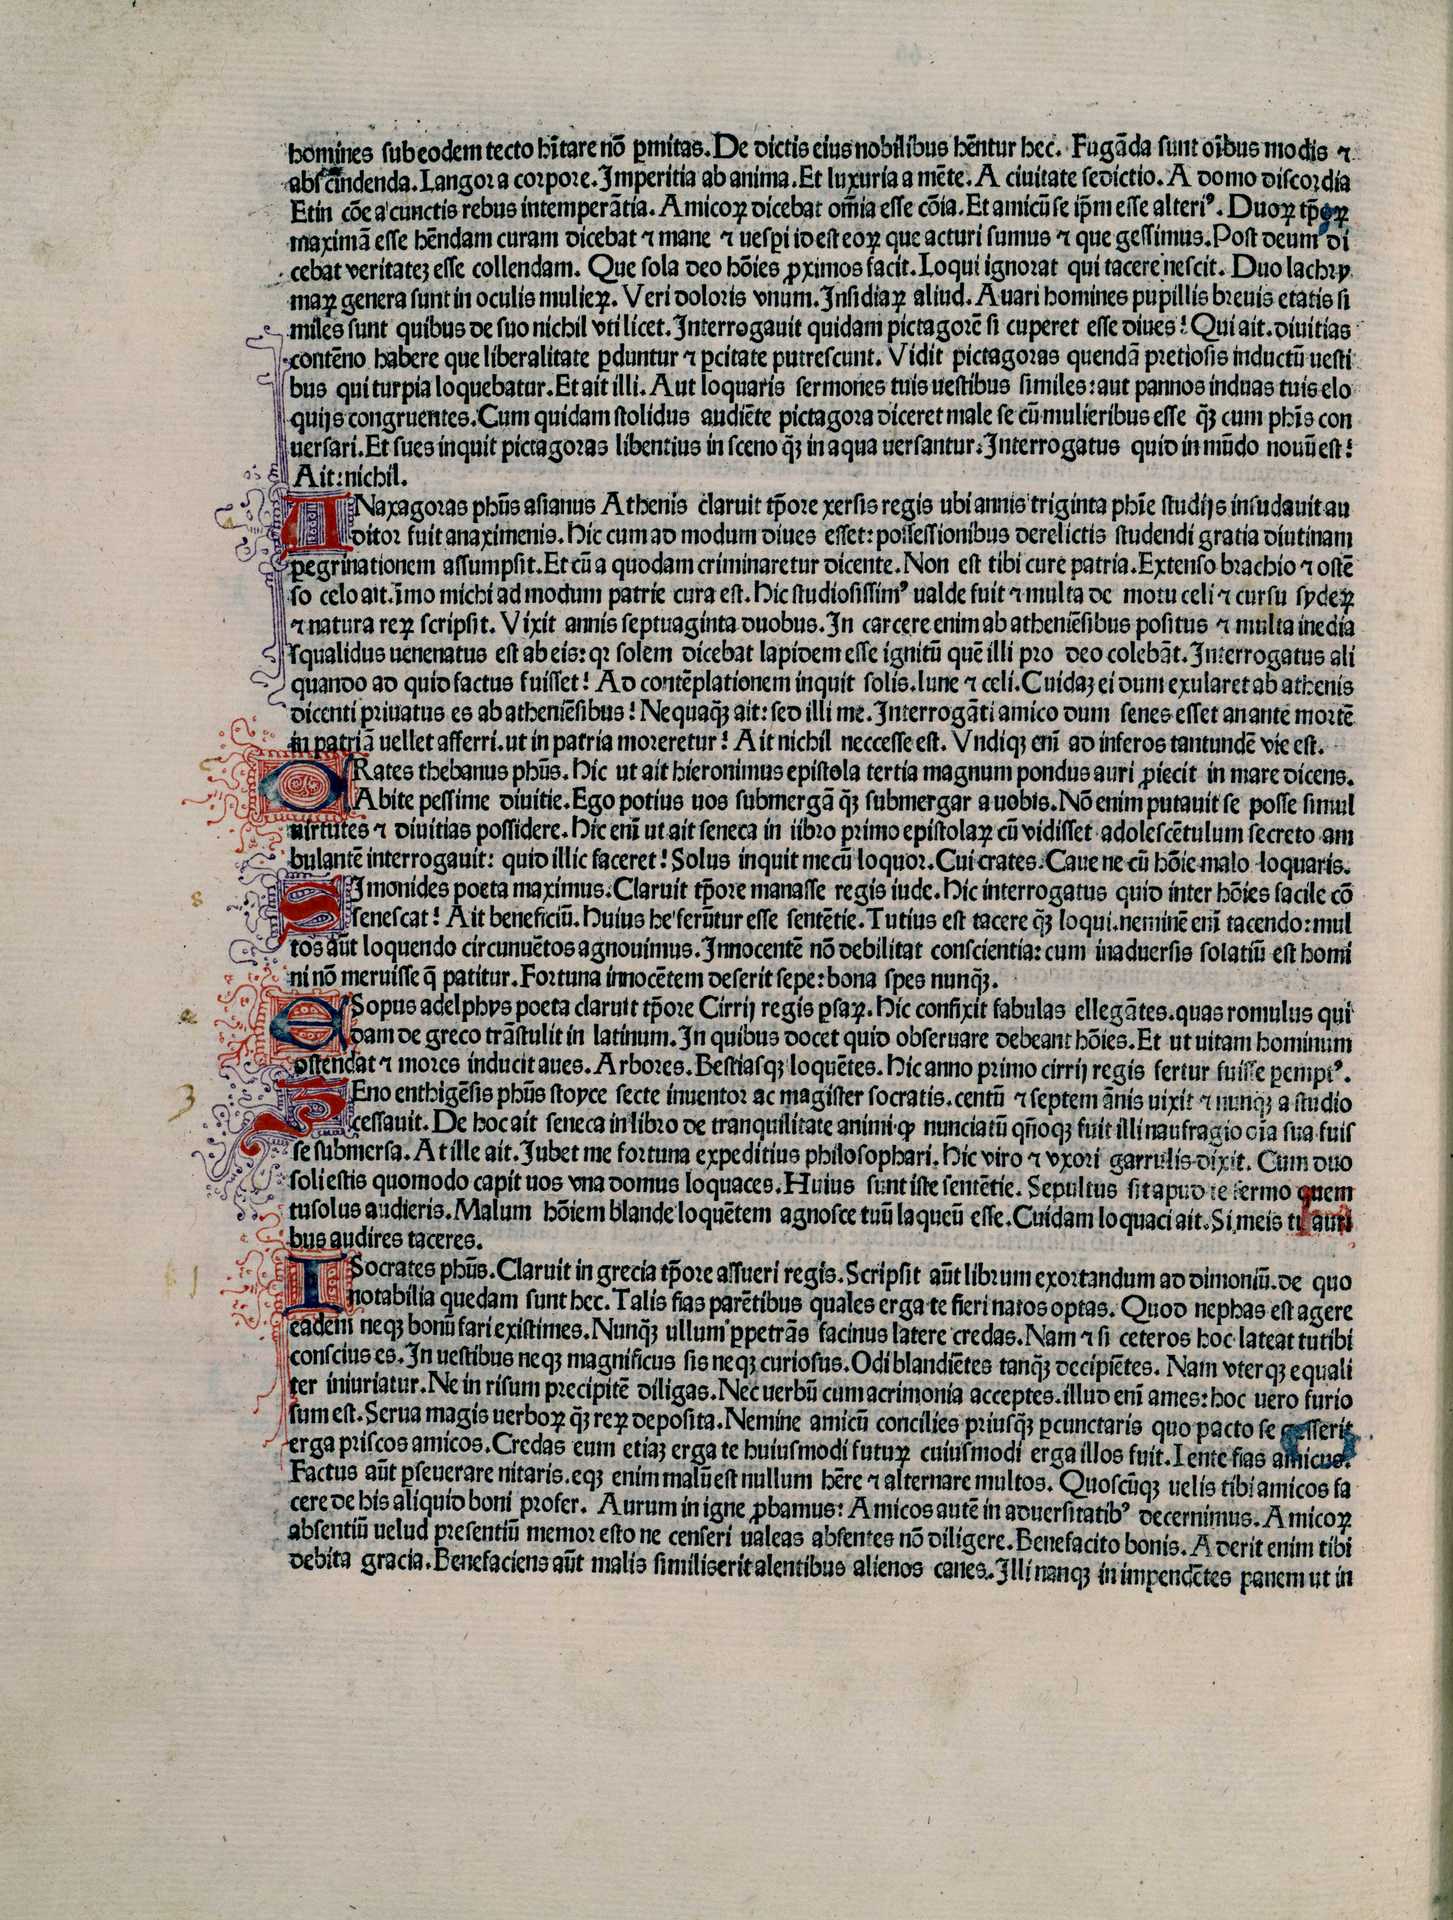 homines sub eodem tecto hītare nō ꝑmitas. De dictis eius nobilibus hēntur hec. Fugāda sunt oībus modis ⁊
abscindenda. Langor a corpore. Imperitia ab anima. Et luxuria a mēte. A ciuitate sedictio. A domo discordia
Et in cōe a cunctis rebus intemperātia. Amicoꝝ dicebat om̄ia esse cōia. Et amicū se ip̄m esse alteriꝰ. Duoꝝ tp̄oꝝ
maximā esse hēndam curam dicebat ⁊ mane ⁊ uesꝑi id est eoꝝ que acturi sumus ⁊ que gessimus. Post deum di
cebat veritateꝫ esse collendam. Que sola deo hōies ꝓximos facit. Loqui ignorat qui tacere nescit. Duo lachry
maꝝ genera sunt in oculis mulieꝝ. Veri doloris vnum. Insidiaꝝ aliud. Auari homines pupillis breuis etatis si
miles sunt quibus de suo nichil vti licet. Interrogauit quidam pictagorē si cuperet esse diues! Qui ait. diuitias
contēno habere que liberalitate ꝑduntur ⁊ ꝑcitate putrescunt. Vidit pictagoras quendā pretiosis inductū uesti
bus qui turpia loquebatur. Et ait illi. Aut loquaris sermones tuis uestibus similes: aut pannos induas tuis elo
quijs congruentes. Cum quidam stolidus audiēte pictagora diceret male se cū mulieribus esse q̄ꝫ cum ph̄is con
uersari. Et sues inquit pictagoras libentius in sceno q̄ꝫ in aqua uersantur: Interrogatus quid in mūdo nouū est!
Ait: nichil.
ANaxagoras ph̄us asianus Athenis claruit tp̄ore xersis regis ubi annis triginta ph̄ie studijs insudauit au
ditor fuit anaximenis. Hic cum ad modum diues esset: possessionibus derelictis studendi gratia diutinam
ꝑegrinationem assumpsit. Et cū a quodam criminaretur dicente. Non est tibi cure patria. Extenso brachio ⁊ ostē
so celo ait. īmo michi ad modum patrie cura est. Hic studiosissimꝰ ualde fuit ⁊ multa de motu celi ⁊ cursu sydeꝝ
⁊ natura reꝝ scripsit. Vixit annis septuaginta duobus. In carcere enim ab atheniēsibus positus ⁊ multa inedia
squalidus uenenatus est ab eis: qꝛ solem dicebat lapidem esse ignitū quē illi pro deo colebāt. Interrogatus ali
quando ad quid factus fuisset! Ad contēplationem inquit solis. lune ⁊ celi. Cuidaꝫ ei dum exularet ab athenis
dicenti priuatus es ab atheniēsibus! Ne quaq̄ꝫ ait: sed illi me. Interrogāti amico dum senes esset an ante mortē
in patriā uellet afferri. ut in patria moreretur! Ait nichil neccesse est. Vndiqꝫ enī ad inferos tantundē vie est.
CRates thebanus ph̄us. Hic ut ait hieronimus epistola tertia magnum pondus auri ꝓiecit in mare dicens.
Abite pessime diuitie. Ego potius uos submergā q̄ꝫ submergar a uobis. Nō enim putauit se posse simul
uirtutes ⁊ diuitias possidere. Hic enī ut ait seneca in libro primo epistolaꝝ cū vidisset adolescētulum secreto am
bulantē interrogauit: quid illic faceret! Solus inquit mecū loquor. Cui crates. Caue ne cū hōie malo loquaris.
SImonides poeta maximus. Claruit tp̄ore manasse regis iude. Hic interrogatus quid inter hōies facile cō
senescat! Ait beneficiū. Huius he ferūtur esse sentētie. Tutius est tacere q̄ꝫ loqui. neminē enī tacendo: mul
tos aūt loquendo circunuētos agnouimus. Innocentē nō debilitat conscientia: cum in aduersis solatiū est homi
ni nō meruisse q̄ patitur. Fortuna innocētem deserit sepe: bona spes nunq̄ꝫ.
ESopus adelphys poeta claruit tp̄ore Cirrij regis ꝑsaꝝ. Hic confixit fabulas ellegātes. quas romulus qui
dam de greco trāstulit in latinum. In quibus docet quid obseruare debeant hōies. Et ut uitam hominum
ostendat ⁊ mores inducit aues. Arbores. Bestiasqꝫ loquētes. Hic anno primo cirrij regis fertur fuisse ꝑemptꝰ.
ZEno enthigēsis ph̄us stoyce secte inuentor ac magister socratis. centū ⁊ septem ānis uixit ⁊ nunqꝫ a studio
cessauit. De hoc ait seneca in libro de tranquilitate animi. ꝙ nunciatū qn̄oqꝫ fuit illi naufragio oīa sua fuis
se submersa. At ille ait. Jubet me fortuna expeditius philosophari. Hic viro ⁊ vxori garrulis dixit. Cum duo
soli estis quomodo capit uos vna domus loquaces. Huius sunt iste sentētie. Sepultus sit apud te sermo quem
tu solus audieris. Malum hōiem blande loquētem agnosce tuū laqueū esse. Cuidam loquaci ait. Si meis tu auri
bus audires taceres.
ISocrates ph̄us. Claruit in grecia tp̄ore assueri regis. Scripsit aūt librum exortandum ad dimoniū. de quo
notabilia quedam sunt hec. Talis fias parētibus quales erga te fieri natos optas. Quod nephas est agere
eadem neqꝫ bonū fari existimes. Nunq̄ꝫ ullum ꝑpetrās facinus latere credas. Nam ⁊ si ceteros hoc lateat tu tibi
conscius es. In uestibus neqꝫ magnificus sis neqꝫ curiosus. Odi blandiētes tanq̄ꝫ decipiētes. Nam vterqꝫ equali
ter iniuriatur. Ne in risum precipitē diligas. Nec uerbū cum acrimonia acceptes. illud enī ames: hoc uero furio
sum est. Serua magis uerboꝝ q̄ꝫ reꝝ deposita. Nemine amicū concilies priusq̄ꝫ ꝑcunctaris quo pacto se gesserit
erga priscos amicos. Credas eum etiaꝫ erga te huiusmodi futuꝝ cuiusmodi erga illos fuit. Lente fias amicus.
Factus aūt ꝑseuerare nitaris. eqꝫ enim malū est nullum hēre ⁊ alternare multos. Quoscūqꝫ uelis tibi amicos fa
cere de his aliquid boni profer. Aurum in igne ꝓbamus: Amicos autē in aduersitatibꝰ decernimus. Amicoꝝ
absentiū uelud presentiū memor esto ne censeri ualeas absentes nō diligere. Benefacito bonis. Aderit enim tibi
debita gracia. Benefaciens aūt malis similis erit alentibus alienos canes. Illi nanqꝫ in impendētes panem ut in